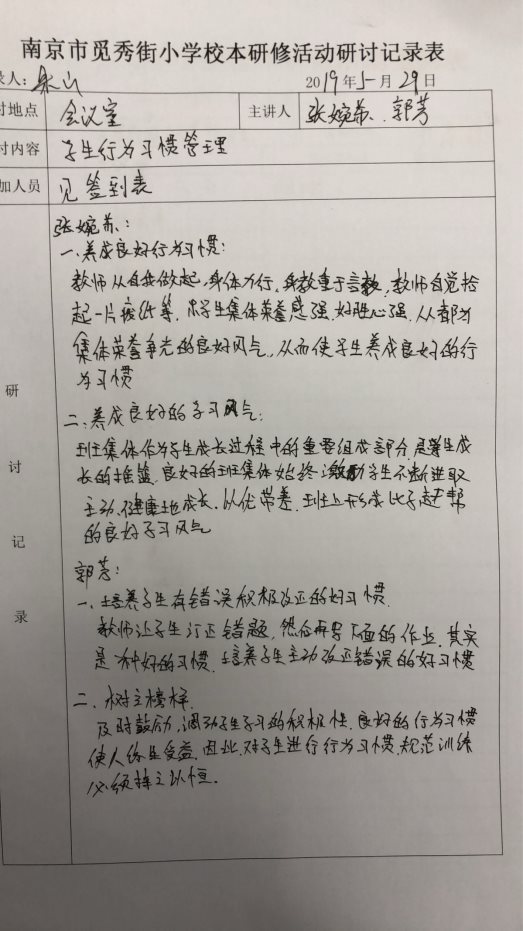 南京市觅秀街小学校本研修活动研讨记录表
录人：朱山 2019年5月29日
讨地点 会议室 主讲人 张婉荪、郭芳
讨内容 学生行为习惯管理
加人员 见签到表
研讨记录
张婉荪：
一、养成良好行为习惯：
教师从自我做起，身体力行，身教重于言教，教师自觉拾
起一片废纸等，使学生集体荣誉感强、好胜心强、人人都为
集体荣誉争光的良好风气，从而使学生养成良好的行
为习惯
二、养成良好的学习风气：
班集体作为学生成长过程中的重要组成部分，是学生成
长的摇篮，良好的班集体始终激励学生不断进取
主动、健康地成长。以优带差，班上形成比学赶帮
的良好学习风气
郭芳：
一、培养学生有错误积极改正的好习惯
教师让学生订正错题，然后再写下面的作业，其实
是一种好的习惯，培养学生主动改正错误的好习惯
二、树立榜样
及时鼓励，调动学生学习的积极性，良好的行为习惯
使人终生受益，因此，对学生进行行为习惯，规范训练
必须持之以恒。